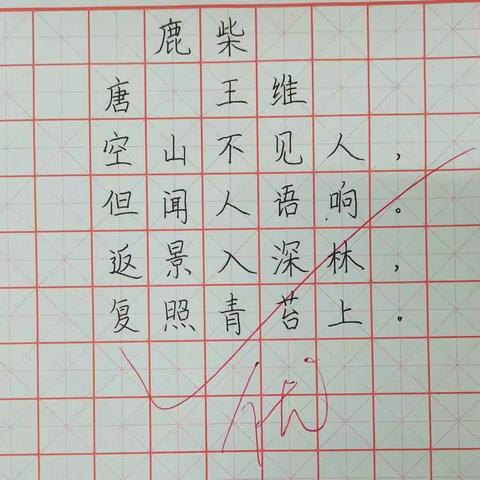 鹿柴
唐 王维
空山不见人，
但闻人语响。
返景入深林，
复照青苔上。
优